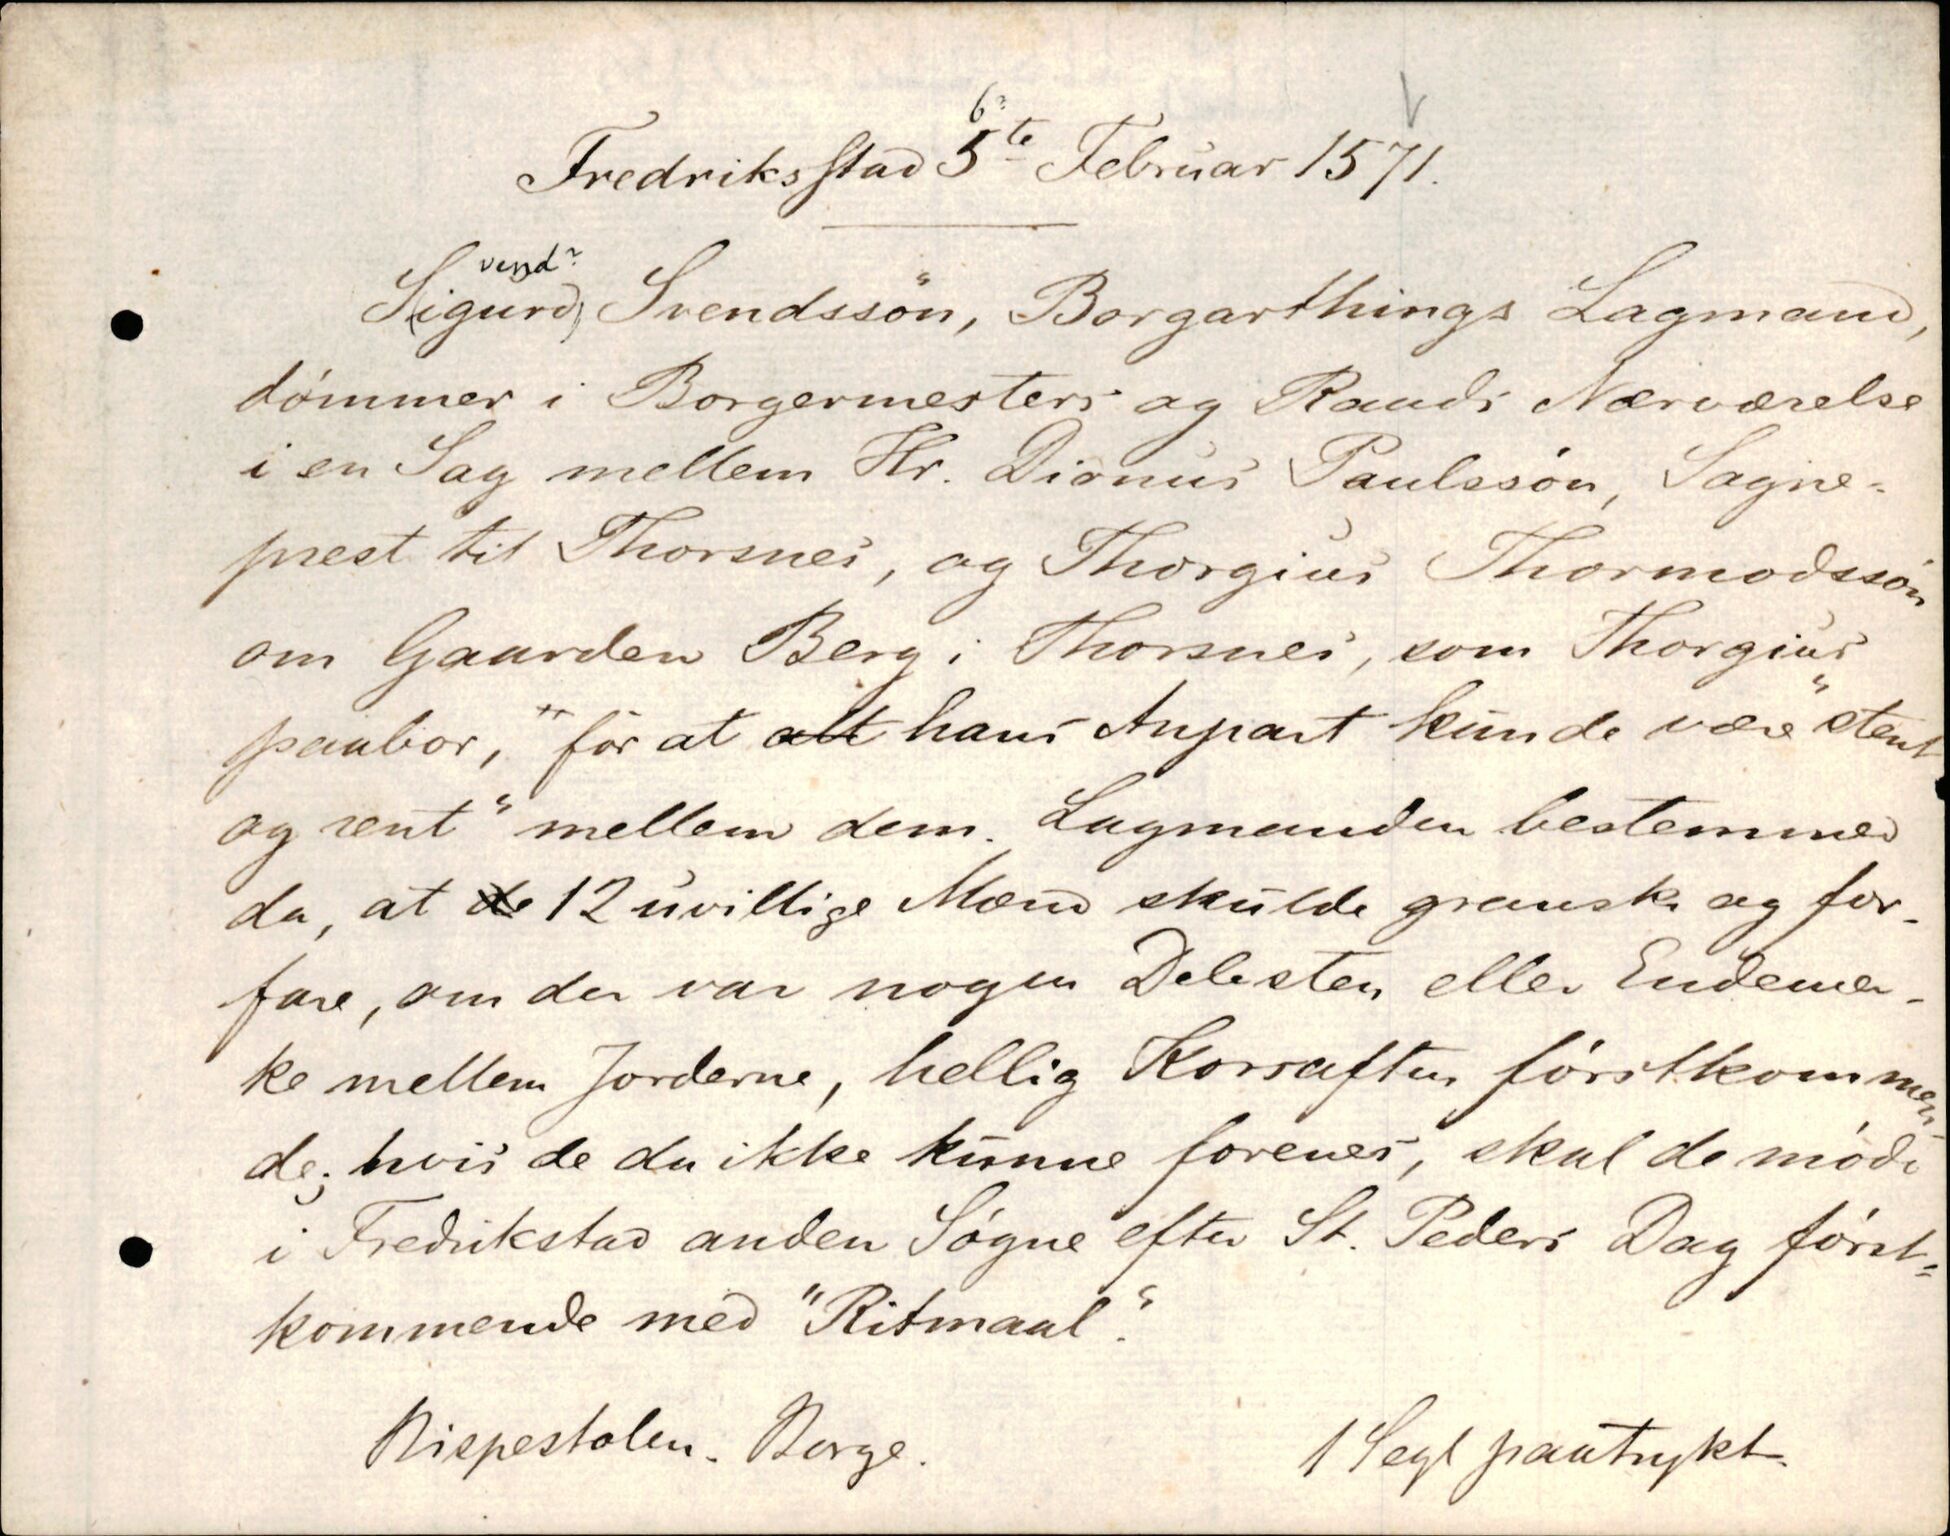 6?
Fredriksstad 5te Februar 1571.
vend?
S(igurd) Svendssön, Borgarthings Lagmand,
dömmer i Borgermesters og Raads Nærværelse
i en Sag mellem Hr. Dionus Paulssön, Sogne-
prest til Thorsnes, og Thorgius Thormodssön
om Gaarden Berg i Thorsnes, som Thorgius
paabor, "för at alt hans Anpart kunde være "stent
og rent" mellem dem. Lagmanden bestemmed
da, at de 12 uvillige Mænd skulde granske og for-
fare, om der var nogen Delesten eller Endemer-
ke mellem Jorderne, hellig Korsaften förstkommen-
de; hvis de da ikke kunne forenes, skal de möde
i Fredrikstad anden Sögne efter St. Peders Dag först-
kommende med "Ritmaal".
Bispestolen. Borge.
1 Segl paatrykt.